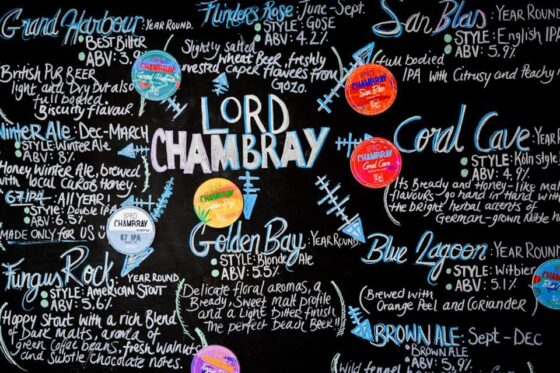 Grand Harbour: YEAR ROUND.
STYLE:
Best Bitter
ABV: 3.
British Pub BEER
light and Dry but also
full bodied
Biscuity flavour
Flinders Rose: June-Sept.
STYLE: GOSE
ABV: 4.2%
Slightly salted
Wheat Beer, freshly
rested cake flowers from
Gozo.
San Blas: YEAR ROUND
STYLE: English IPA
ABV: 5.9%
full bodied
IPA with Citrusy and Peachy
LORD
CHAMBRAY
Winter Ale: Dec-MARCH
STYLE: Winter Ale
ABV: 8%
Honey Winter Ale, brewed
with local carob Honey
67 IPA - All YEAR!
STYLE: Double IPA
ABV: 6.5%
MADE ONLY FOR US
LORD
CHAMBRAY
67 IPA
Coral Cave: YEAR
STYLE: Köln style
ABV: 4.9%
Its Bready and Honey-like malt
flavours go hand in hand with
the bright herbal accents of
German-grown Noble
Golden Bay: YEAR ROUND.
STYLE: Blonde Ale
ABV: 5.5%
Delicate floral aromas, a
Bready, Sweet Malt profile
and a Light Bitter finish
The perfect Beach Beer!!
Blue Lagoon: YEAR ROUND.
STYLE: Witbier
ABV: 5.1%
Brewed with
Orange Peel and Coriander
Fungus Rock: YEAR ROUND
STYLE: AMERICAN STOUT
ABV: 5.6%
Happy Stout with a rich Blend
of Dark Malts, aroma of
green Coffee beans, fresh walnuts
and Subtle chocolate notes.
BROWN ALE: Sept - Dec
STYLE: BROWN ALE
ABV: 5.9%
Wild fennel
LORD
CHAMBRAY
San Blas
LORD
CHAMBRAY
Coral Cave
CHAMBRAY
CHAMBRAY